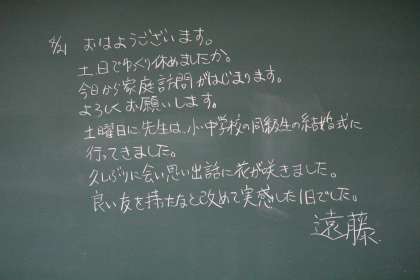 4/21 おはようございます。
土日でゆっくり休めましたか。
今日から家庭訪問がはじまります。
よろしくお願いします。
土曜日に先生は、小・中学校の同級生の結婚式に
行ってきました。
久しぶりに会い思い出話に花が咲きました。
良い友を持ったなと改めて実感した1日でした。
遠藤